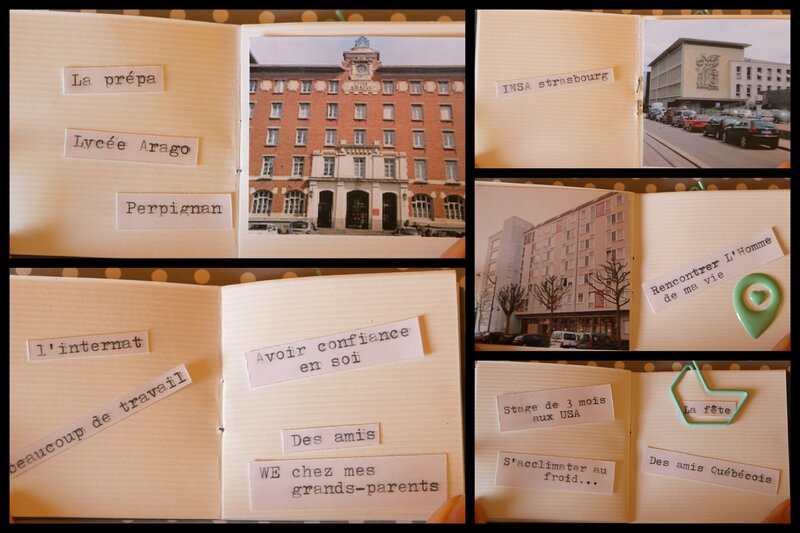 La prépa
Lycée Arago
Perpignan
ARAGO
l'internat
beaucoup de travail
Avoir confiance
en soi
Des amis
WE chez mes
grands-parents
INSA strasbourg
Rencontrer L'Homme
de ma vie
Stage de 3 mois
aux USA
S'acclimater au
froid...
La fête
Des amis Québécois